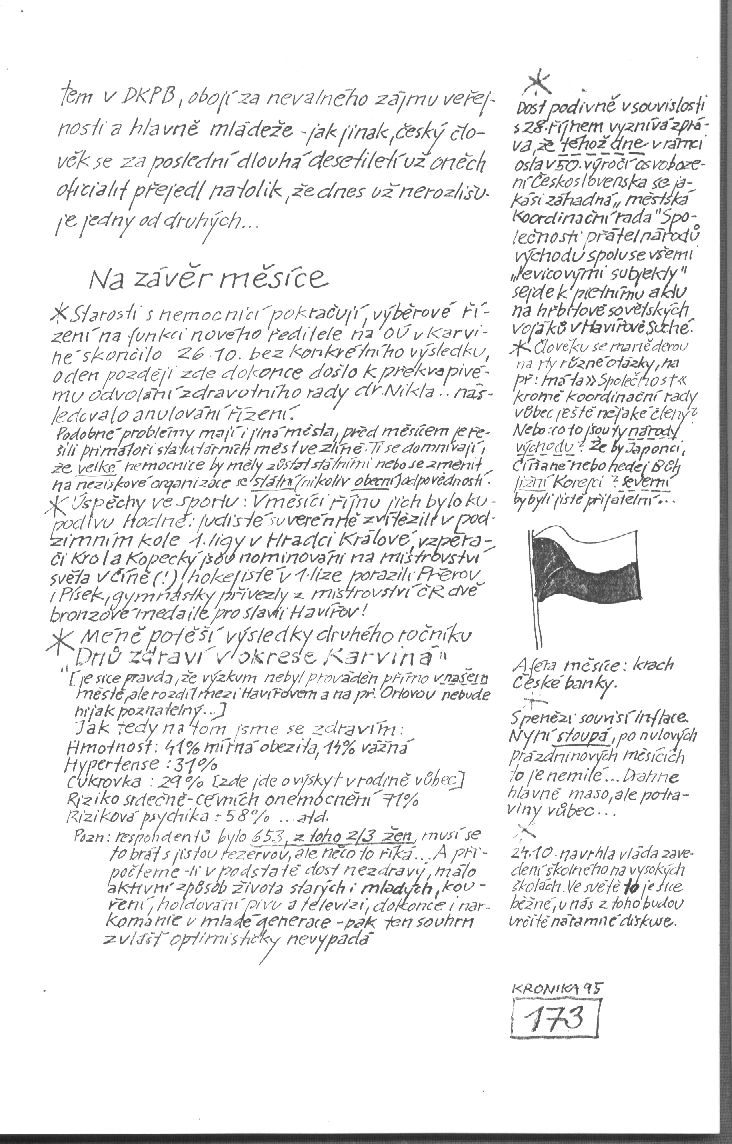 tem v DKPB, obojí za nevalného zájmu veřej-
nosti a hlavně mládeže - jak jinak, český člo-
věk se za poslední dlouhá desetiletí už oněch
oficialit přejedl natolik, že dnes už nerozlišu-
je jedny od druhých...
Na závěr měsíce
* Starosti s nemocnicí pokračují, výběrové ří-
zení na funkci nového ředitele na OÚ v Karvi-
né skončilo 26.10. bez konkrétního výsledku,
o den později zde dokonce došlo k překvapivé-
mu odvolání zdravotního rady dr. Nikla.. nás-
ledovalo anulování řízení.
Podobné problémy mají i jiná města, před měsícem je ře-
šili primátoři statutárních měst ve Zlíně. Ti se domnívají,
že velké nemocnice by měly zůstat státními nebo se změnit
na neziskové organizace se státní (nikoliv obecní) odpovědností.
* Úspěchy ve sportu: V měsíci říjnu jich bylo ku-
podivu hodně: judisté suverénně zvítězili v pod-
zimním kole 1. ligy v Hradci Králové, vzpěra-
či Krol a Kopecký jsou nominováni na mistrovství
světa v Číně (!), hokejisté v 1. lize porazili Přerov
i Písek, gymnastky přivezly z mistrovství ČR dvě
bronzové medaile pro slavný Havířov!
* Méně potěší výsledky druhého ročníku
"Dnů zdraví v okrese Karviná"
[je sice pravda, že výzkum nebyl prováděn přímo v našem
městě, ale rozdíl mezi Havířovem a na př. Orlovou nebude
nijak poznatelný...]
Jak tedy na tom jsme se zdravím:
Hmotnost: 41% mírná obezita, 14% vážná
Hypertense: 31%
Cukrovka: 29% [zde jde o výskyt v rodině vůbec]
Riziko srdečně-cévních onemocnění 71%
Riziková psychika: 58% ... atd.
Pozn: respondentů bylo 653, z toho 2/3 žen, musí se
to brát s jistou rezervou, ale něco to říká... A při-
počteme-li v podstatě dost nezdravý, málo
aktivní způsob života starých i mladých, kou-
ření, holdování pivu a televizi, dokonce i nar-
komanie v mladé generace - pak ten souhrn
zvlášť optimisticky nevypadá
*
Dost podivně v souvislosti
s 28. říjnem vyznívá zprá-
va, že téhož dne v rámci
oslav 50. výročí osvoboze-
ní Československa se ja-
kási záhadná „městská
koordinační rada" Spo-
lečnosti přátel národů
východu spolu se všemi
„levicovými subjekty"
sejde k pietnímu aktu
na hřbitově sovětských
vojáků v Havířově Suché.
* Člověku se mamě derou
na rty různé otázky, na
př: má ta »Společnost«
kromě koordinační rady
vůbec ještě nějaké členy?
Nebo: co to jsou ty národy
východu? Že by Japonci,
Číňané nebo nedej Bůh
jižní Korejci? Severní
by byli jistě přijatelní...
Aféra měsíce: krach
České banky.
S penězi souvisí inflace.
Nyní stoupá, po nulových
prázdninových měsících
to je nemilé... Drahne
hlavně maso, ale potra-
viny vůbec...
*
24.10. navrhla vláda zave-
dení školného na vysokých
školách. Ve světě to je sice
běžné, u nás z toho budou
určitě náramné diskuse.
KRONIKA 95
173